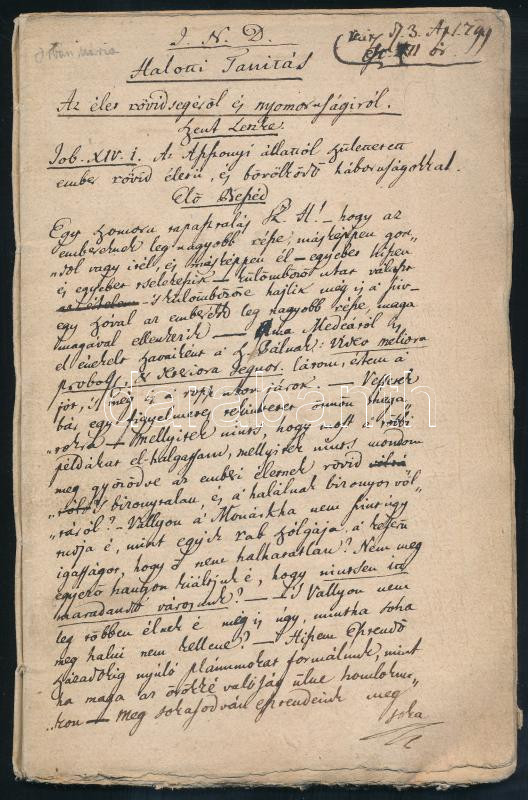 I. N. D.
3. Ap. 1799
Halotti Tanitás
Az élet rövidségéről és nyomorúságiról.
Szent Leczke.
Job. XIV. 1. Az Asszonyi állattól születtetett
ember rövid életű, és bővölködő háborúságokkal.
Elő Beszéd
Egy szomorú tapasztalás Sz. H! – hogy az
embereknek leg nagyobb része, másképpen gon„
„dol vagy itél, és másképpen él – egyebet hiszen
és egyebet cselekszik – külömböző utat választ
is külömbözőre hajlik még is a szív–
egy szóval az emberek leg nagyobb része, maga
magával ellenkezik – Ama Medeáról is
el énekelt szavaiként a Sz. Pálnak: Video meliora
proboq;, & deteriora sequor. látom, értem a
jót, 's még is a rossz úton járok. – Vessetek
bár egy figyelmetes tekintetet önnön maga„
„tokra – Mellyitek nints, hogy most a többi
példákat el-halgassam, mellyitek nints mondom
meg győződve az emberi életnek rövid
is bizonytalan, és a halálnak bizonyos vól„
„táról? – Vallyon a' Monárkha nem szint úgy
tudja é, mint egyik rab szolgája, a' betű
igasságot, hogy ő nem halhatatlan? Nem meg
egyező hangon kiáltjuk é, hogy nintsen itt
maradandó városunk? – 's Vallyon nem
leg többen élnek é még is úgy, mintha soha
meg halni nem kellene? – Hiszem Esztendő
századokig nyúló plánumokat formálunk, mint
ha maga az örökké valóság ülne homlokun„
„kon – meg sokasodván esztendeink meg
soka
darabanth